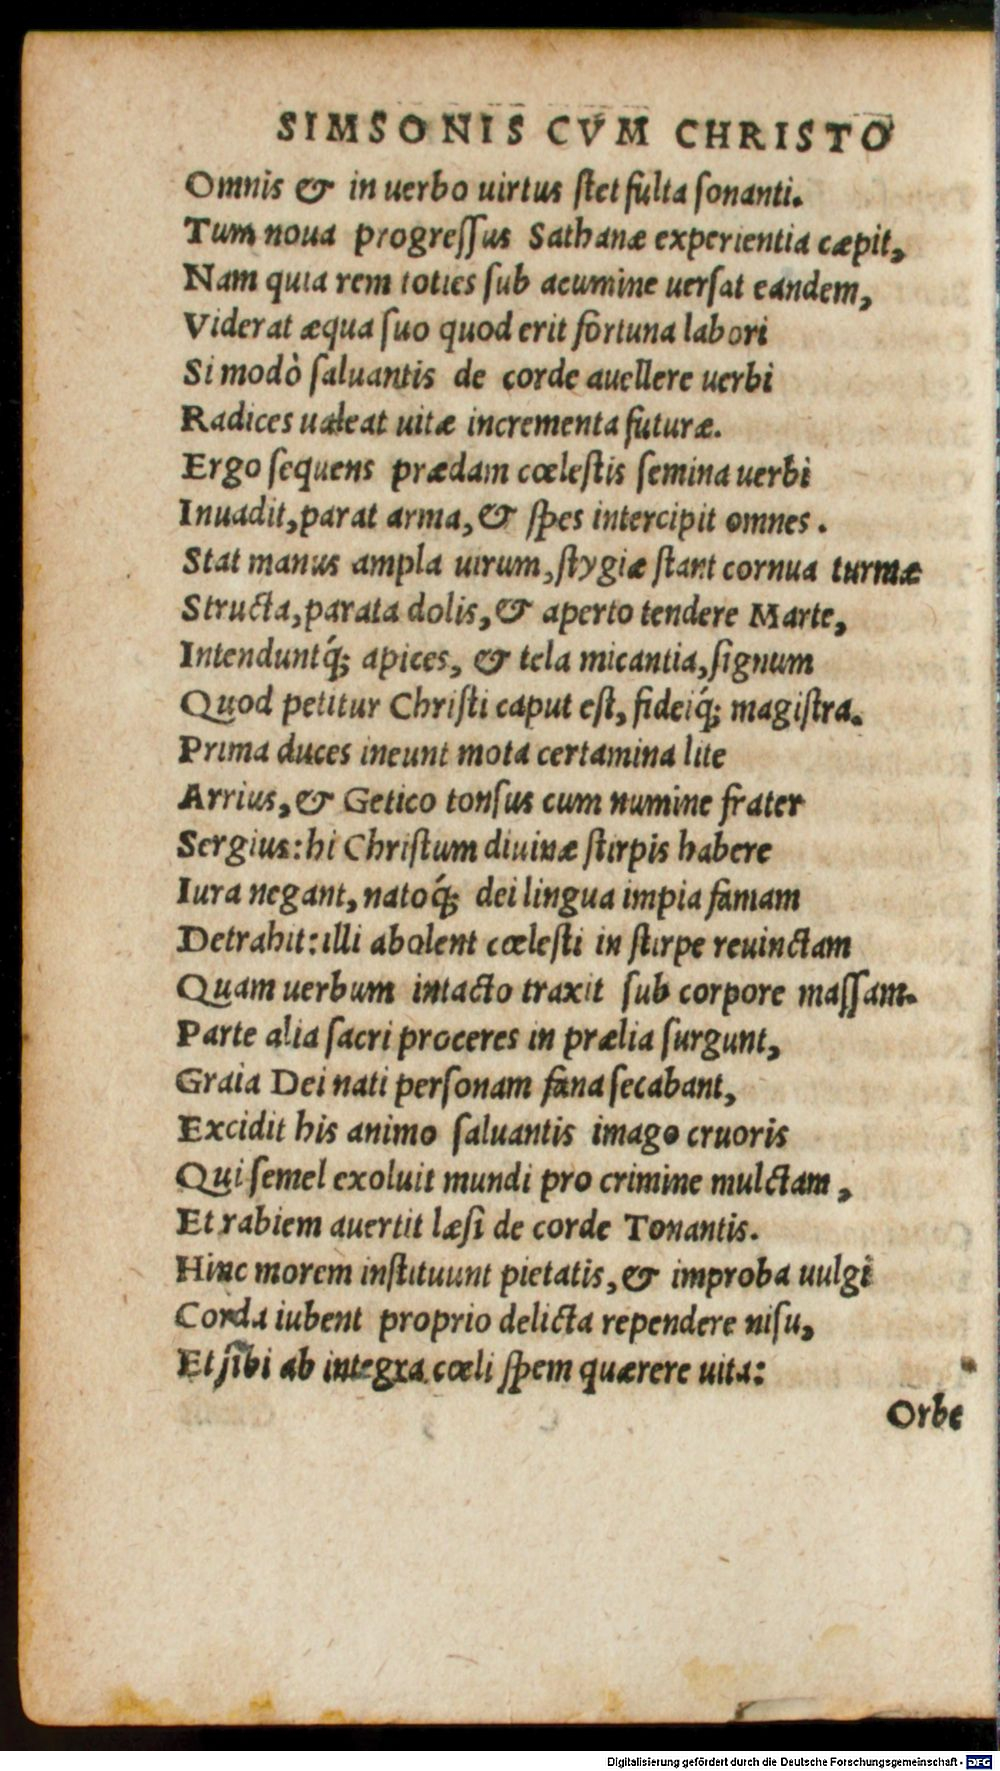 SIMSONIS CVM CHRISTO
Omnis & in uerbo uirtus ſtet fulta ſonanti.
Tum noua progreſſus Sathanæ experientia cæpit,
Nam quia rem toties ſub acumine uerſat eandem,
Viderat æqua ſuo quod erit fortuna labori
Si modò ſaluantis de corde auellere uerbi
Radices ualeat uitæ incrementa futuræ.
Ergo ſequens prædam cœleſtis ſemina uerbi
Inuadit, parat arma, & ſpes intercipit omnes.
Stat manus ampla uirum, ſtygiæ ſtant cornua turmæ
Structa, parata dolis, & aperto tendere Marte,
Intenduntq́; apices, & tela micantia, ſignum
Quod petitur Chriſti caput eſt, fideiq́; magiſtra.
Prima duces ineunt mota certamina lite
Arrius, & Getico tonſus cum numine frater
Sergius: hi Chriſtum diuinæ ſtirpis habere
Iura negant, natoq́; dei lingua impia famam
Detrahit: illi abolent cœleſti in ſtirpe reuinctam
Quam uerbum intacto traxit ſub corpore maſſam.
Parte alia ſacri proceres in prælia ſurgunt,
Graia Dei nati perſonam fana ſecabant,
Excidit his animo ſaluantis imago cruoris
Qui ſemel exoluit mundi pro crimine mulctam,
Et rabiem auertit læſi de corde Tonantis.
Hinc morem inſtituunt pietatis, & improba uulgi
Corda iubent proprio delicta rependere niſu,
Et ſibi ab integra cœli ſpem quærere uita:
Orbe
Digitalisierung gefördert durch die Deutsche Forschungsgemeinschaft - DFG